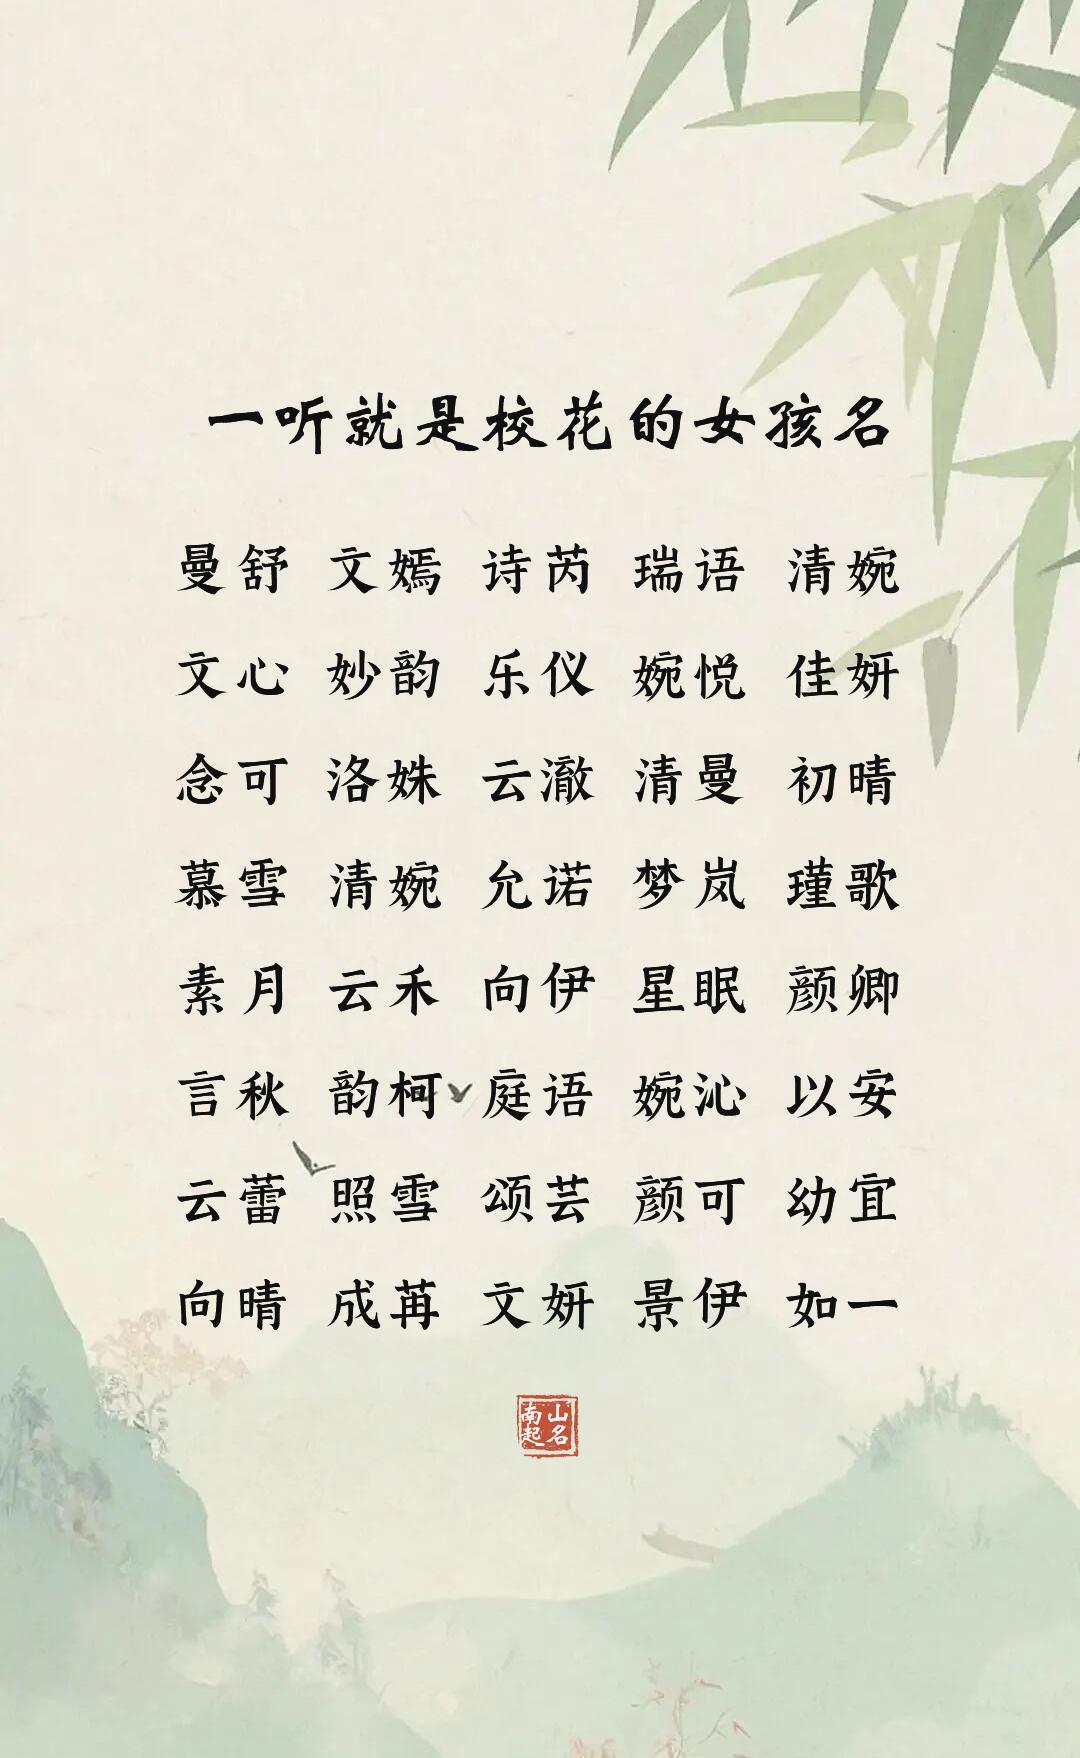 一听就是校花的女孩名
曼舒 文嫣 诗芮 瑞语 清婉
文心 妙韵 乐仪 婉悦 佳妍
念可 洛姝 云澈 清曼 初晴
慕雪 清婉 允诺 梦岚 瑾歌
素月 云禾 向伊 星眠 颜卿
言秋 韵柯 庭语 婉沁 以安
云蕾 照雪 颂芸 颜可 幼宜
向晴 成苒 文妍 景伊 如一
南山起名